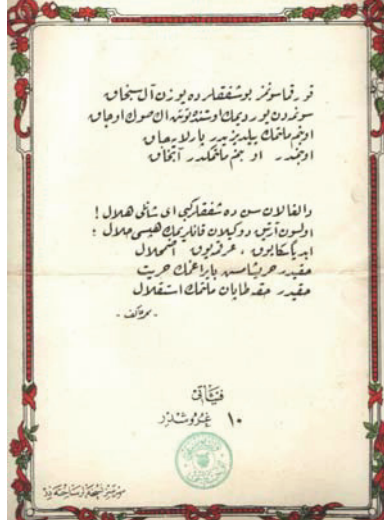 قورقماسونمز بو شفقلرده یوزن آل سنجاق
سونمدن یوردیمك اوستنده توتن اك صوڭ اوجاق
او بنم ملتمك ییلدیزیدر پارلایه جاق
او بنمدر او بنم ملتمكدر آنجاق
دالغالان سن ده شفقلر كبی ای شانلی هلال !
اولسون آرتیق دوكیلان قانلریمك هپسی حلال ؛
ابدیاً سكا یوق ، عرقمه یوق اضمحلال
حقیدر حر یاشامش بایراغمك حریت
حقیدر حقه طاپان ملتمك استقلال
- محمد عاكف -
فیئاتی
۱۰ غروشدر